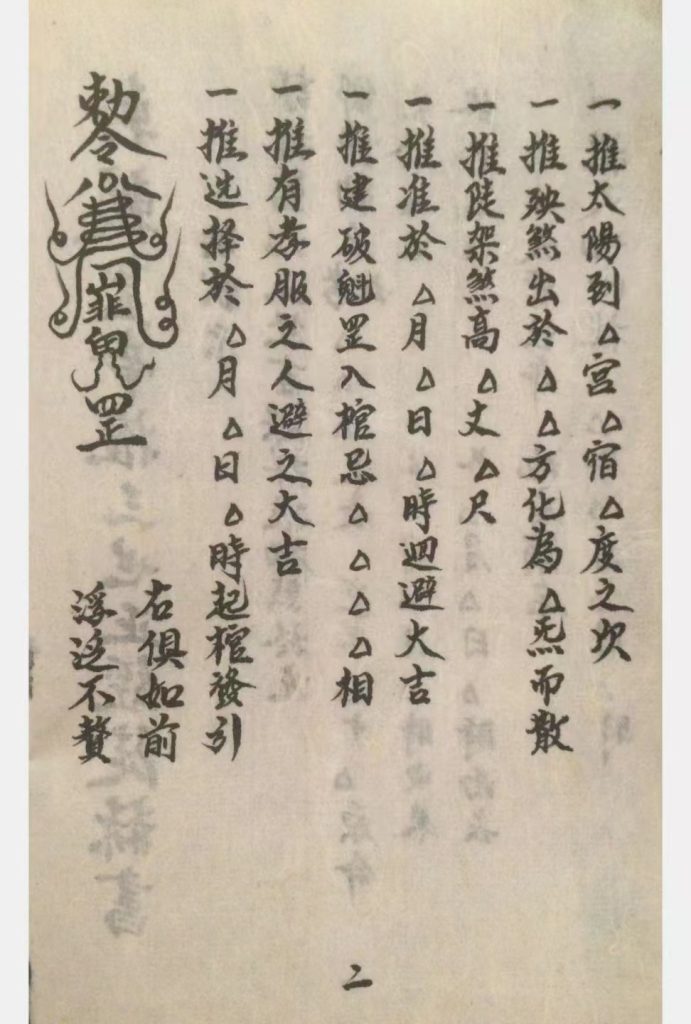 一推太陽到△宮△宿△度之次
一推殃煞出於△△方化為△炁而散
一推陡架煞高△丈△尺
一推准於△月△日△時迴避大吉
一推建破魁罡入棺忌△△△△相
一推有孝服之人避之大吉
一推选择於△月△日△時起棺發引
右俱如前
浮泛不贅
敕令罡
二